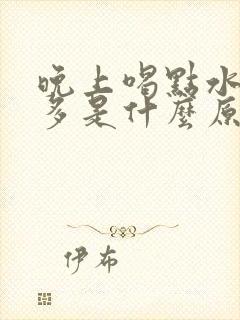 晚上喝點水
多是什麼原
伊布